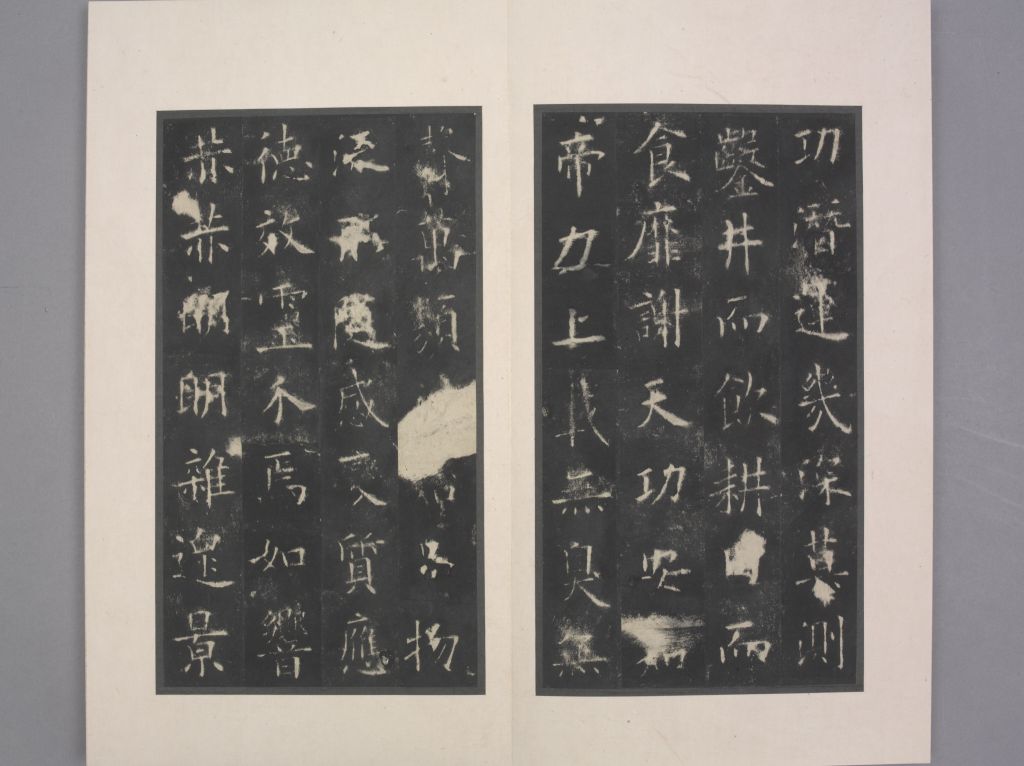 功潛運幾深莫測
鑿井而飲耕田而
食靡謝天功安知
帝力上載無臭無
聲萬類始品物
流形隨感變質應
德效靈介焉如響
赫赫眀眀雜遝景